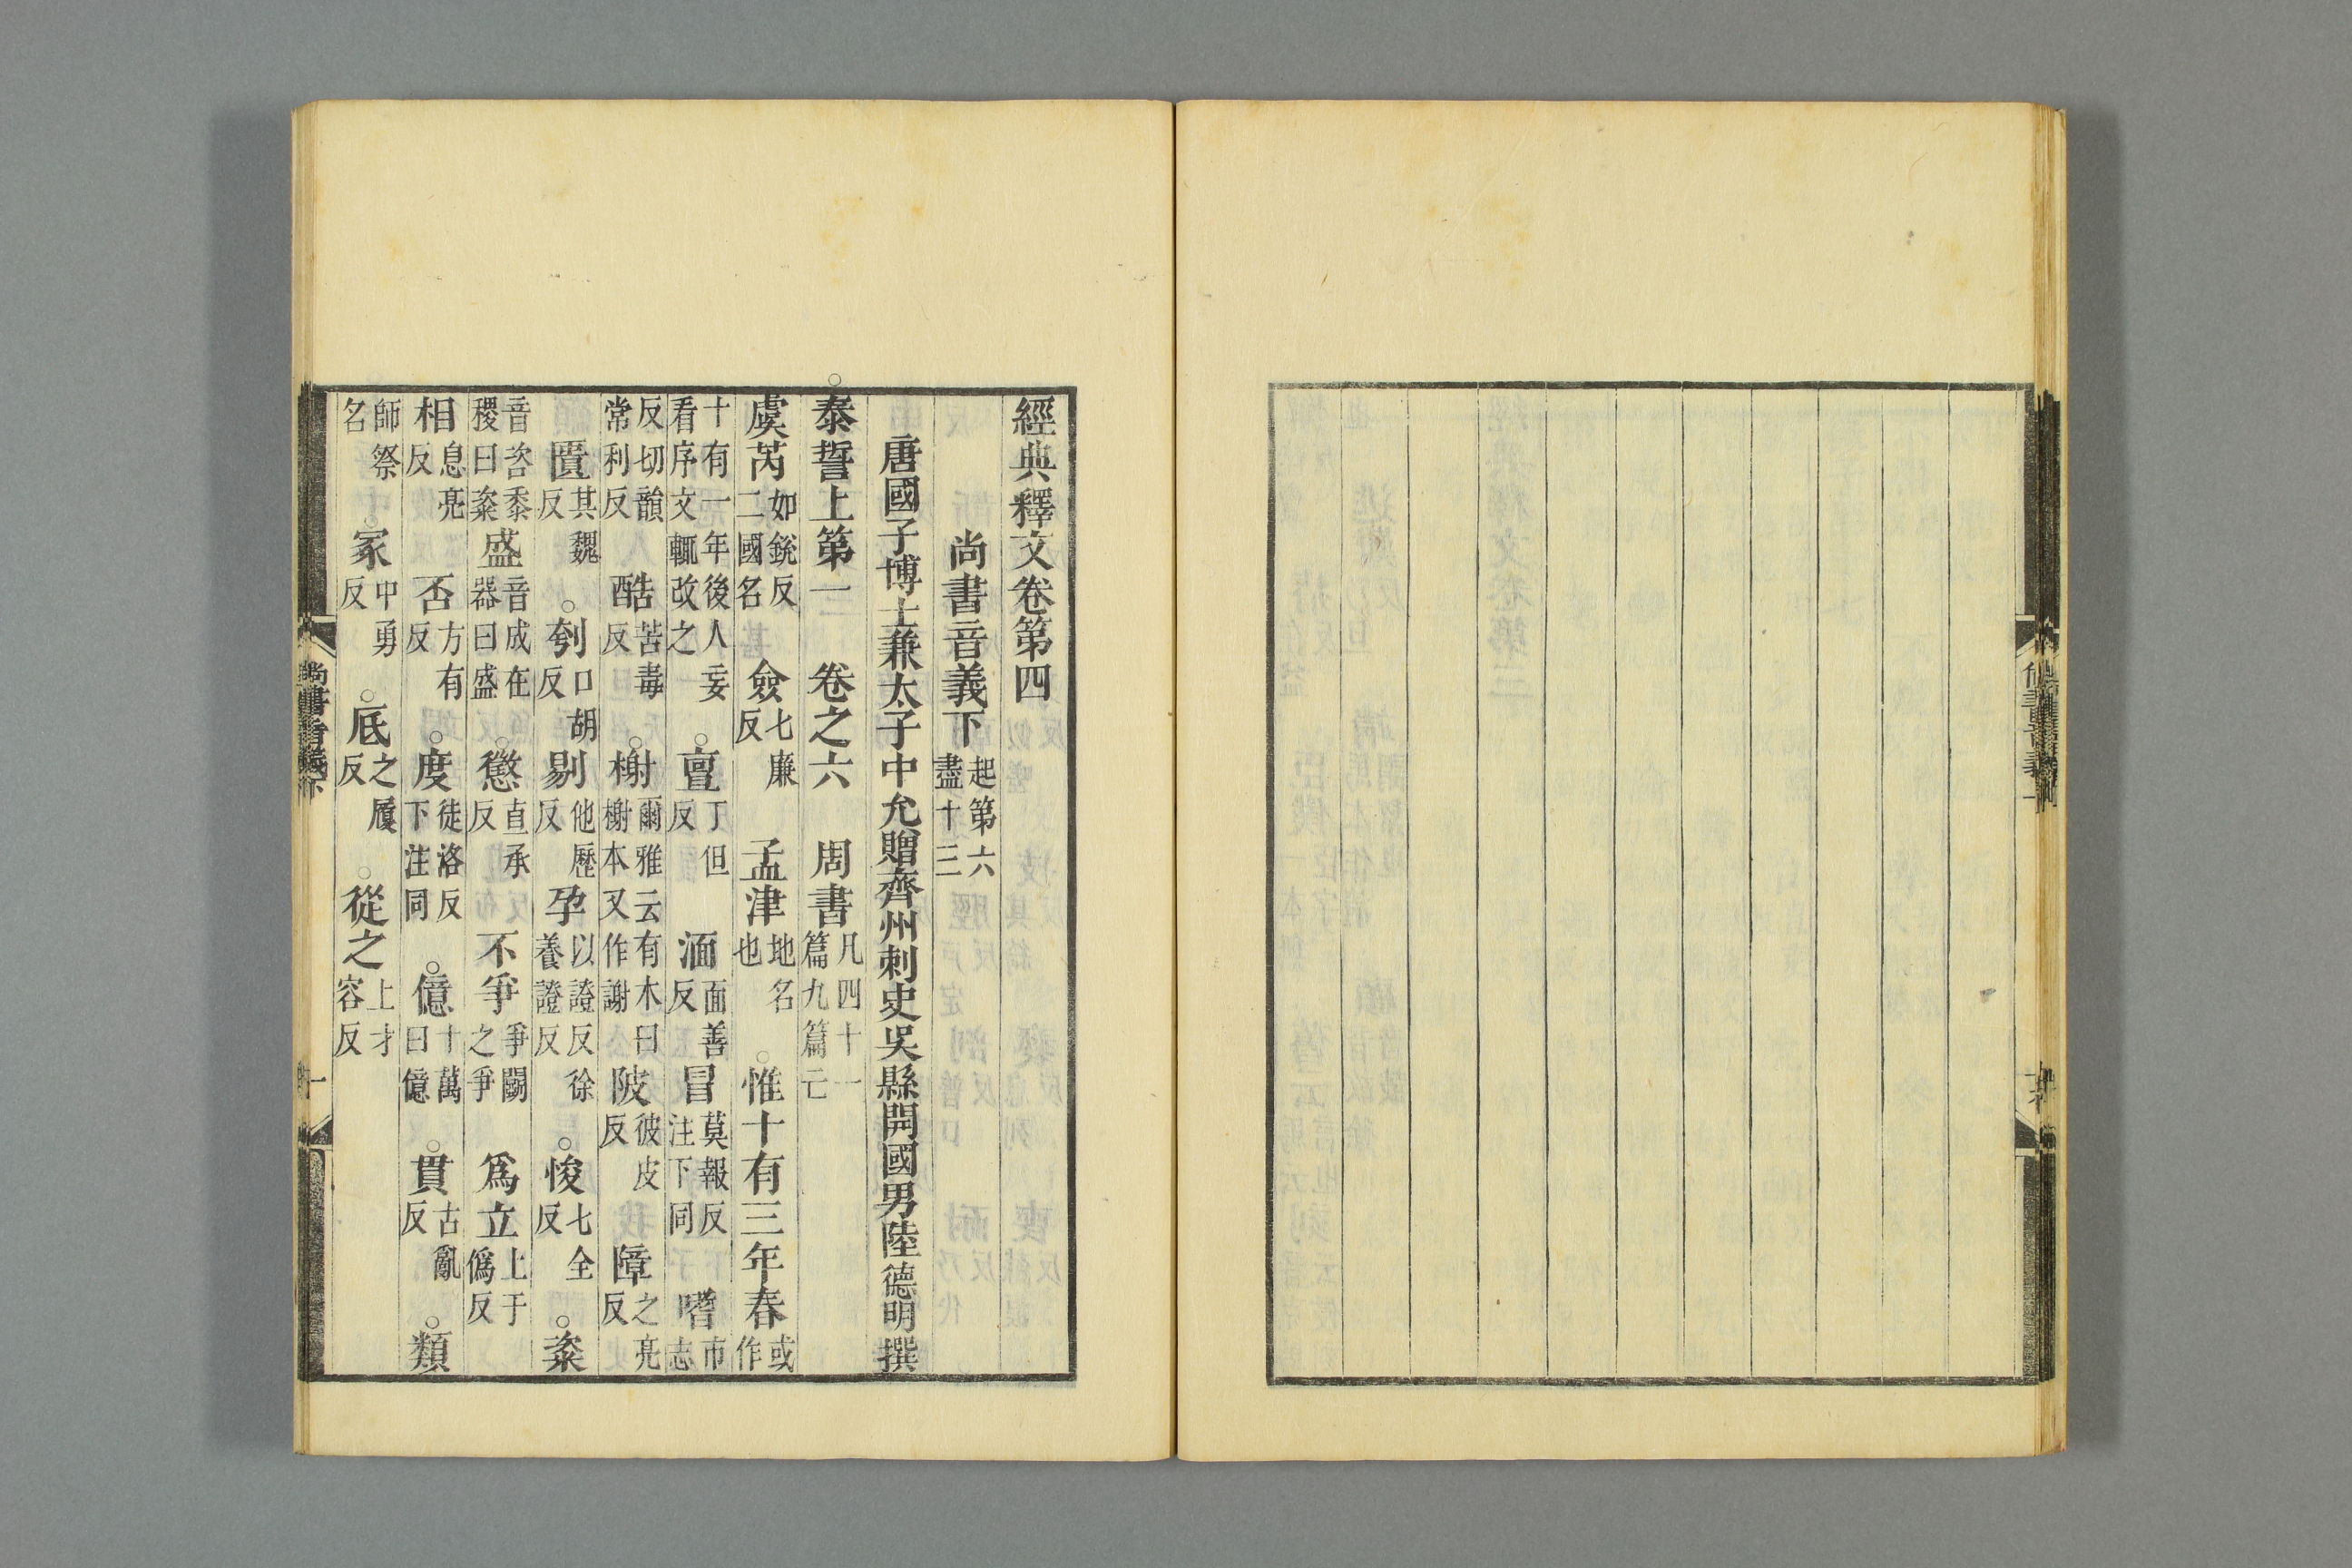 經典釋文卷第四
尚書音義下 起第六盡十三
唐國子博士兼太子中允贈齊州刺史吳縣開國男陸德明撰
○泰誓上第一 卷之六 周書 凡四十一篇九篇亡
虞芮 如銳反二國名 僉 七廉反 孟津 地名也 ○惟十有三年春 或作
十有一年後人妄看序文輒改之 ○亶 丁但反 湎 面善反 冒 莫報反注下同 嗜 市志
反切韻常利反 酷 苦毒反 ○榭 爾雅云有木曰榭本又作謝 陂 彼皮反 障 之亮反
匱 其魏反 ○刳 口胡反 剔 他歷反 孕 以證反徐養證反 ○悛 七全反 ○粢
音咨黍稷曰粢 盛 音成在器曰盛 ○懲 直承反 不爭 爭鬭之爭 爲立 上于僞反
相 息亮反 否 方有反 ○度 徒洛反下注同 ○億 十萬曰億 ○貫 古亂反 ○類
師祭名 ○冢 中勇反 ○底 之履反 ○從之 上才容反
尚書音義下
一